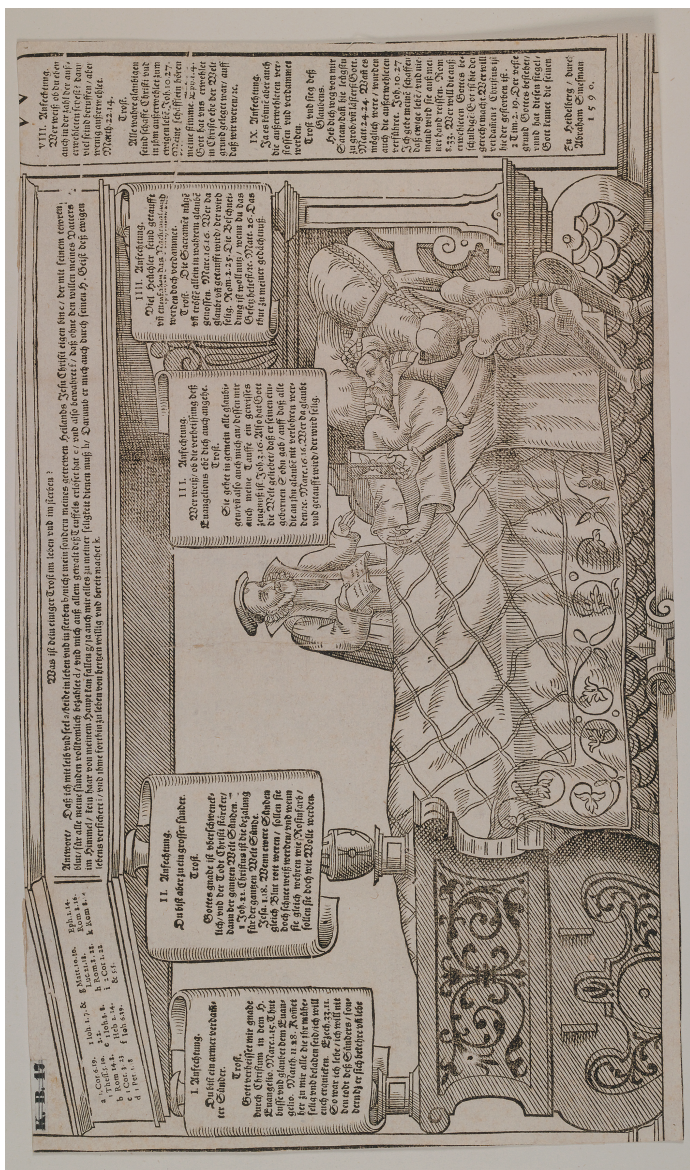 K. B. 17
a 1 Cor. 6. 19.
1 Thess. 5. 10.
b Rom 14. 8.
c 1 Cor. 3. 23
d 1 Pet 1. 18
1 Ioh 1. 7. &
2. 2.
e 1 Ioh 3. 8.
Heb 2. 14.
f Ioh 6. 39.
g Matt. 10. 30.
Luc. 21. 18.
h Rom 8. 28.
i 2 Cor 1. 22
& 5. 5.
Eph. 1. 14.
Rom 8. 16.
k Rom 8.
Was ist dein einiger Trost im leben vnd im sterben?
Antwort/ Daß ich mit leib vnd seel a/beide in leben vnd in sterben b/nicht mein sondern meines getrewen Heilands Jesu Christi eigen bin c/ der mit seinem tewren
blut/ für alle meine sünden volkomlich bezahlet d/ vnd mich auß allem gewalt deß Teuffels erlöset hat e/ vnd also bewahret f/ daß ohne den willen meines Vatters
im Himmel/ kein haar von meinem Haupt kan fallen g/ ja auch mir alles zu meiner seligkeit dienen muß h/ Darumb er mich auch durch seinen H. Geist deß ewigen
lebens versichert i/ vnd ihme forthin zu leben von hertzen willig vnd bereit machet k.
I. Anfechtung.
Du bist ein armer verdampter
Sünder.
Trost.
Gott verheisset mir gnade
durch Christum in dem H.
Euangelio. Marc. 1. 15. Thut
busse vnd glaubet dem Euangelio.
Matth. 11. 28. Kommet
her zu mir alle die ihr mühselig
vnd beladen seid/ ich will
euch erquicken. Ezech. 33. 11.
So war ich lebe/ ich will nit
den tode deß Sünders/ sondern
dz er sich bekehre vñ lebe
II. Anfechtung.
Du bist aber zu ein grosser sünder.
Trost.
Gottes gnade ist vberschwencklich/
vnd der Todt Christi stärcker/
dann der gantzen Welt Sünden.
1 Joh. 2. 1. Christus ist die bezalung
für der gantzen Welt Sünde.
Jesa. 1. 18. Wenn ewere Sünden
gleich Blut rott weren/ sollen sie
doch schnee weiß werden: vnd wenn
sie gleich wehren wie Rosinfarb/
sollen sie doch wie Wolle werden.
III. Anfechtung.
Wer weiß/ ob die verheissung deß
Euangelions ebē dich auch angehe.
Trost.
Sie gehet in gemein alle glaubigen/
vñ also auch mich an/ dessen mir
auch meine Tauffe ein gewisses
zeugnuß ist. Joh. 3. 16. Also hat Gott
die Welt geliebet/ daß er seinen eingebornen
Sohn gab/ auff daß alle
die an jhn glaubē nit verlohren werden/
etc. Marc. 16. 16. Wer da glaubt
vnd getaufft wird/ der wird selig.
IIII. Anfechtung.
Viel Heuchler seind getaufft
werden doch verdammet.
Trost. Die Sacramēt nütze
vñ tröstē allein in wahrem glaubē
genossen. Marc. 16. 16. Wer da
glaubt vñ getaufft wird/ der wird
selig. Rom. 2. 25. Die Beschneidung
ist wol nutz/ wenn du das
Gesetz heltest/ etc. Matt. 26. Das
thut zu meiner gedächtnuß.
VIII. Anfechtung.
Wer weiß/ ob du eben
auch in der zahl der außerwehlten
seyest/ dann
viel seind beruffen/ aber
wenig außerwehlet.
Matth 22. 14.
Trost.
Alle wahre glaubigen
seind schaffe Christi vnd
in jhm außerwehlet zum
ewigen lebē. Joh. 10. 27.
Meine schäfflein hören
meine stimme. Eph. 1. 4.
Gott hat vns erwehlet
in Christo ehe der Welt
grund geleget war/ auff
daß wir weren/ etc.
IX. Anfechtung.
Ja es könnē aber auch
die außerwehlten verstossen
vnd verdammet
werden.
Trost vnd sieg deß
Glaubens.
Heb dich weg von mir
Satan/ daß die lehgstu
zu grob/ vñ lästerst Gott.
Matt. 24. 24. Wañ es
möglich were/ würden
auch die außerwehlten
verführet. Joh. 10. 27
Ich gebe meinē schaffen
daß ewige lebē/ vnd niemand
wird sie auß meiner
hand reissen. Rom
8. 33. Wer will die außerwehlten
Gottes beschuldige?
Gott ist hie der
gerecht macht. Wer will
verdammē? Christus ist
hie der gestorben ist.
2 Tim 2. 19. Der veste
grund Gottes bestehet/
vnnd hat diesen siegel/
Gott kennet die seinen
Zu Heidelberg/ durch
Abraham Smesman
1590.